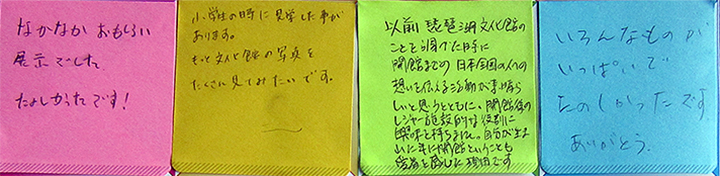 なかなか おもしろい
展示でした
たのしかったです!
小学生の時に見学した事が
あります。
もっと文化館の写真を
たくさん見てみたいです。
以前 琵琶湖文化館の
ことを調べた時に
開館までの 日本全国の人々の
想いを伝える活動が素晴ら
しいと思うとともに、開館後の
レジャー施設的な役割に
興味を持ちました。自分が生ま
年に閉館ということも
です
いろんなものが
いっぱいで
たのしかったです
ありがとう。